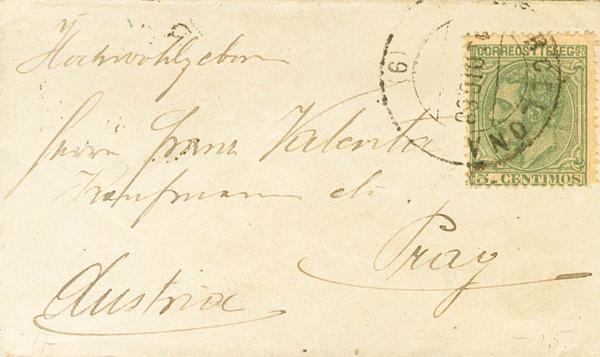 Hochwohlgeboren
Herrn Franz Valenta
Kaufmann etc.
Prag
Austria
CORREOS Y TELEGS
5 CENTIMOS
(6)